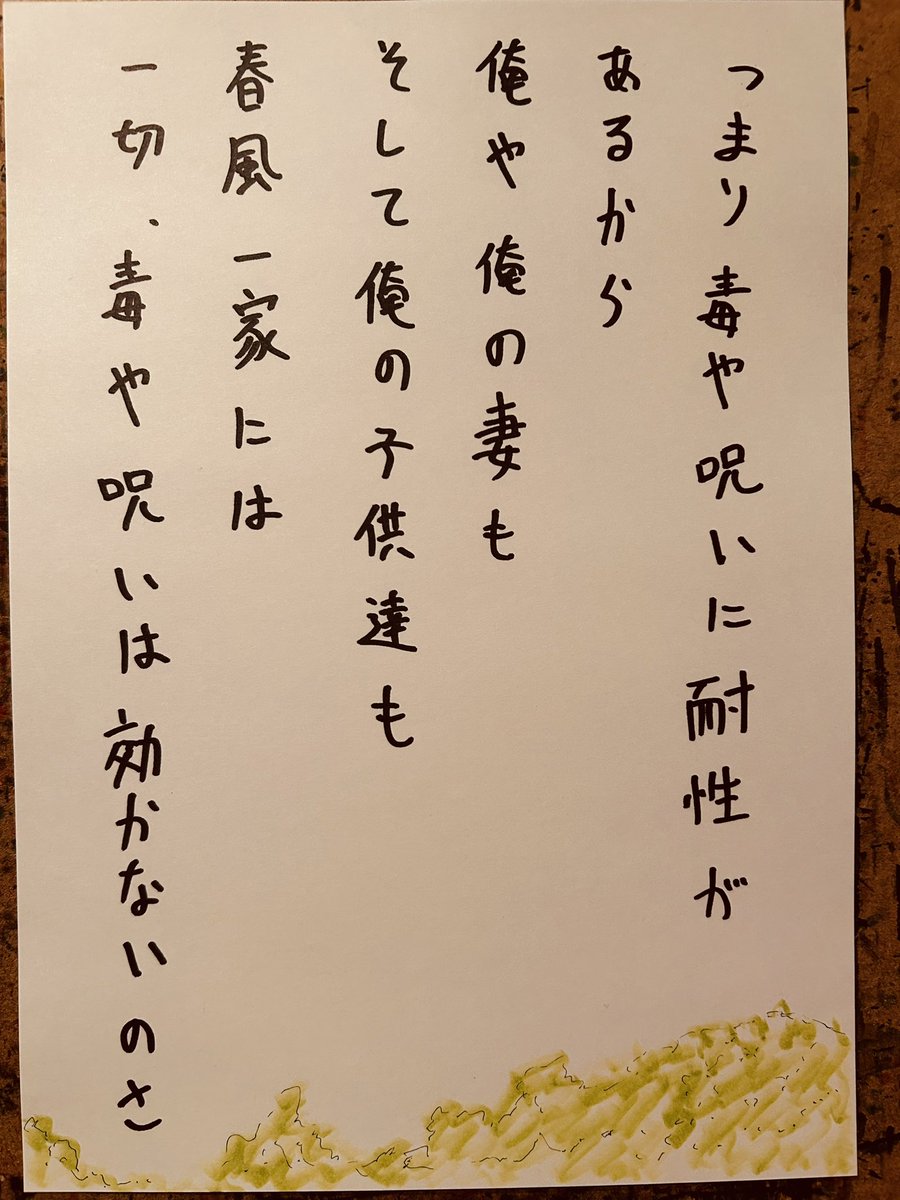 つまり毒や呪いに耐性が
あるから
俺や俺の妻も
そして俺の子供達も
春風一家には
一切、毒や呪いは効かないのさ